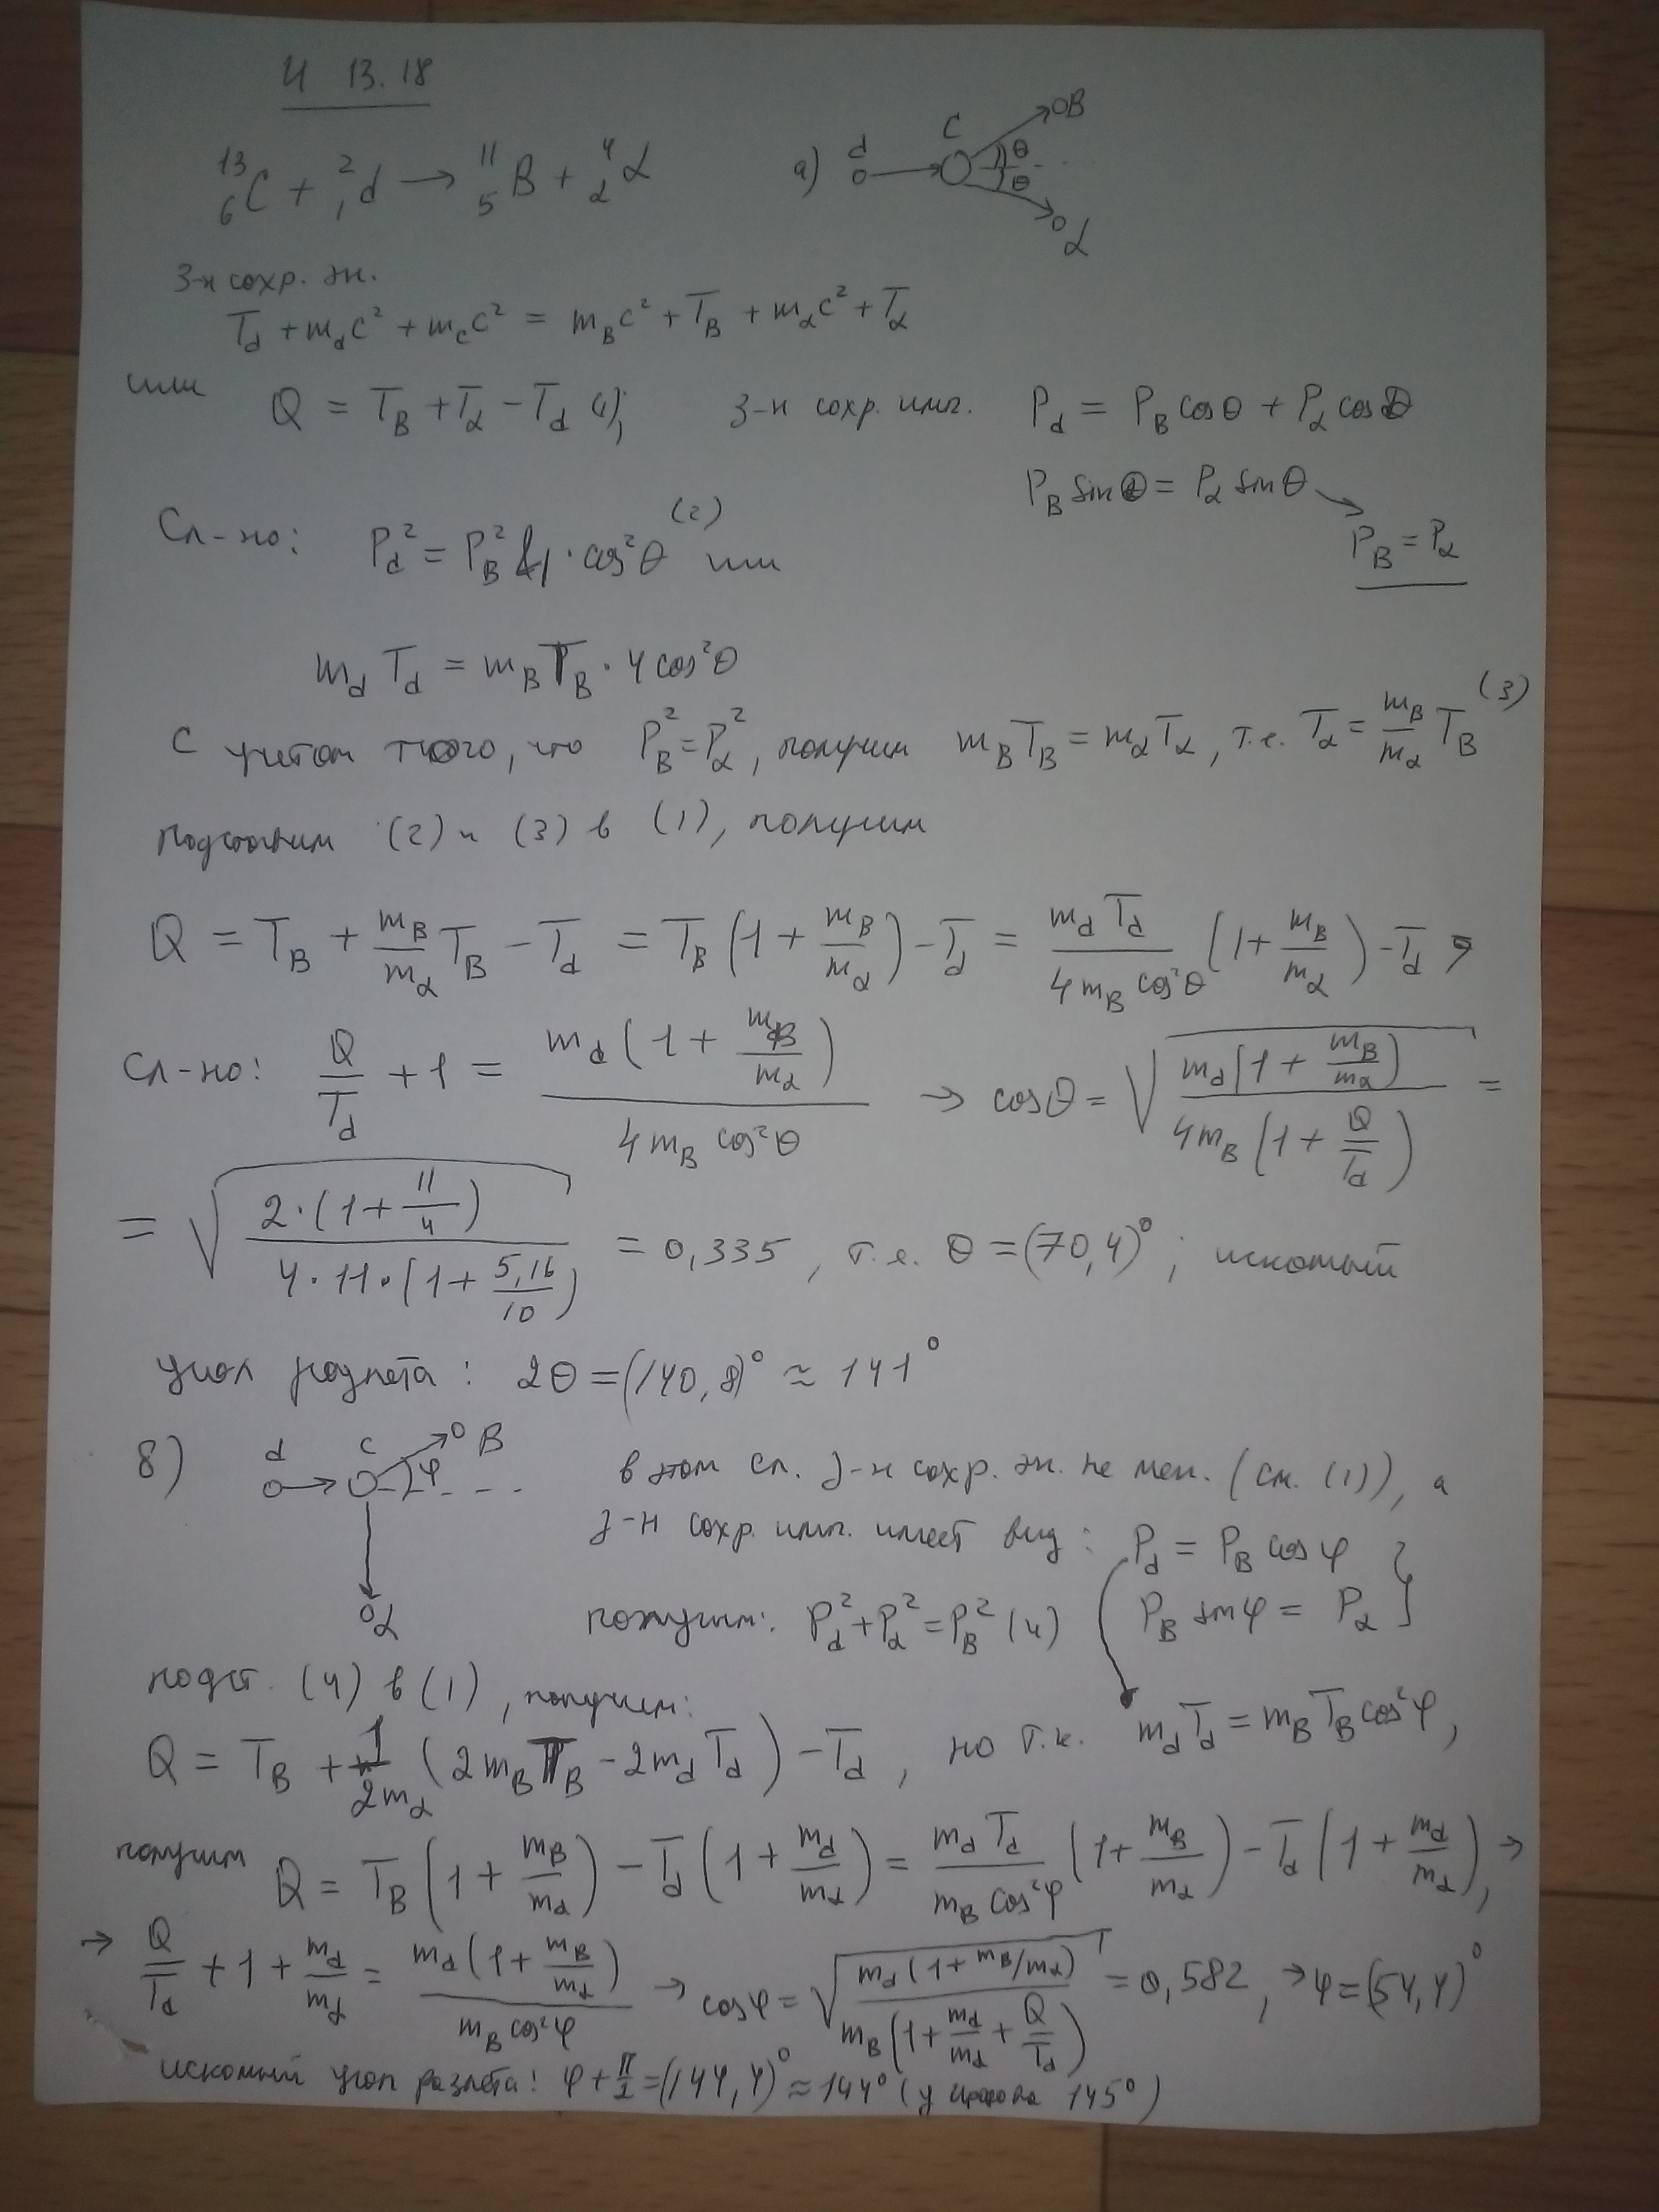 И 13.18
¹³₆C + ²₁d → ¹¹₅B + ⁴₂α
а) d C B θ θ α
З-н сохр. эн.
T_d + m_d c² + m_c c² = m_B c² + T_B + m_α c² + T_α
или Q = T_B + T_α − T_d (1); З-н сохр. имп. P_d = P_B cosθ + P_α cosθ
P_B sinθ = P_α sinθ
P_B = P_α
Сл-но: P_d² = P_B² 4 · cos²θ (2) или
m_d T_d = m_B T_B · 4 cos²θ
С учетом того, что P_B² = P_α², получим m_B T_B = m_α T_α, т.е. T_α = m_B/m_α T_B (3)
Подставим (2) и (3) в (1), получим
Q = T_B + m_B/m_α T_B − T_d = T_B (1 + m_B/m_α) − T_d = m_d T_d / 4 m_B cos²θ (1 + m_B/m_α) − T_d →
Сл-но: Q/T_d + 1 = m_d (1 + m_B/m_α) / 4 m_B cos²θ → cosθ = √(m_d (1 + m_B/m_α) / 4 m_B (1 + Q/T_d)) =
= √(2·(1 + 11/4) / 4·11·(1 + 5,16/10)) = 0,335, т.е. θ = (70,4)°; искомый
угол разлета: 2θ = (140,8)° ≈ 141°
б) d C B φ α
в этом сл. з-н сохр. эн. не мен. (см. (1)), а
з-н сохр. имп. имеет вид: P_d = P_B cosφ
P_B sinφ = P_α
получим: P_d² + P_α² = P_B² (4)
подст. (4) в (1), получим:
Q = T_B + 1/2m_α (2 m_B T_B − 2 m_d T_d) − T_d, но т.к. m_d T_d = m_B T_B cos²φ,
получим Q = T_B (1 + m_B/m_α) − T_d (1 + m_d/m_α) = m_d T_d / m_B cos²φ (1 + m_B/m_α) − T_d (1 + m_d/m_α), →
→ Q/T_d + 1 + m_d/m_α = m_d (1 + m_B/m_α) / m_B cos²φ → cosφ = √(m_d (1 + m_B/m_α) / m_B (1 + m_d/m_α + Q/T_d)) = 0,582, → φ = (54,4)°
искомый угол разлета: φ + π/2 = (144,4)° ≈ 144° (у Иродова 145°)